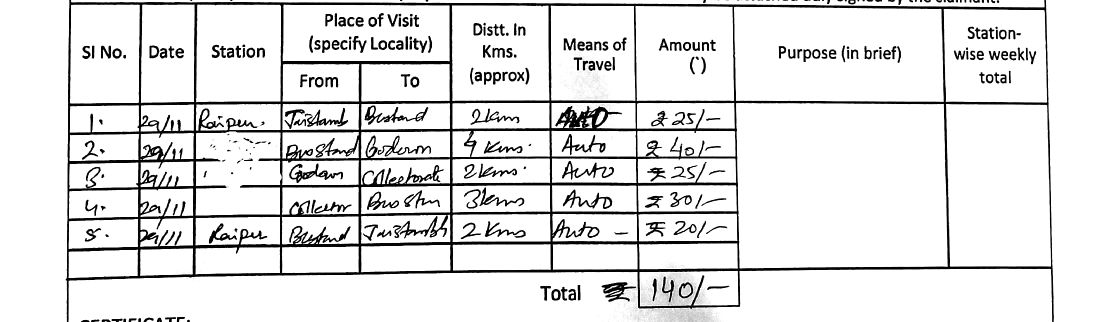 Sl No. Date Station Place of Visit (specify Locality) From To Distt. In Kms. (approx) Means of Travel Amount (`) Purpose (in brief) Station-wise weekly total
1. 29/11 Raipur. Jaistamb Bustand 2km Auto ₹ 25/-
2. 29/11 Bus Stand Godown 4 Kms. Auto ₹ 40/-
3. 29/11 Godown Collectorate 2kms. Auto ₹ 25/-
4. 29/11 Collector Bus Stan 3kms Auto ₹ 30/-
5. 29/11 Raipur Bustand Jaistambh 2 Kms Auto - ₹ 20/-
Total ₹ 140/-
CERTIFICATE: